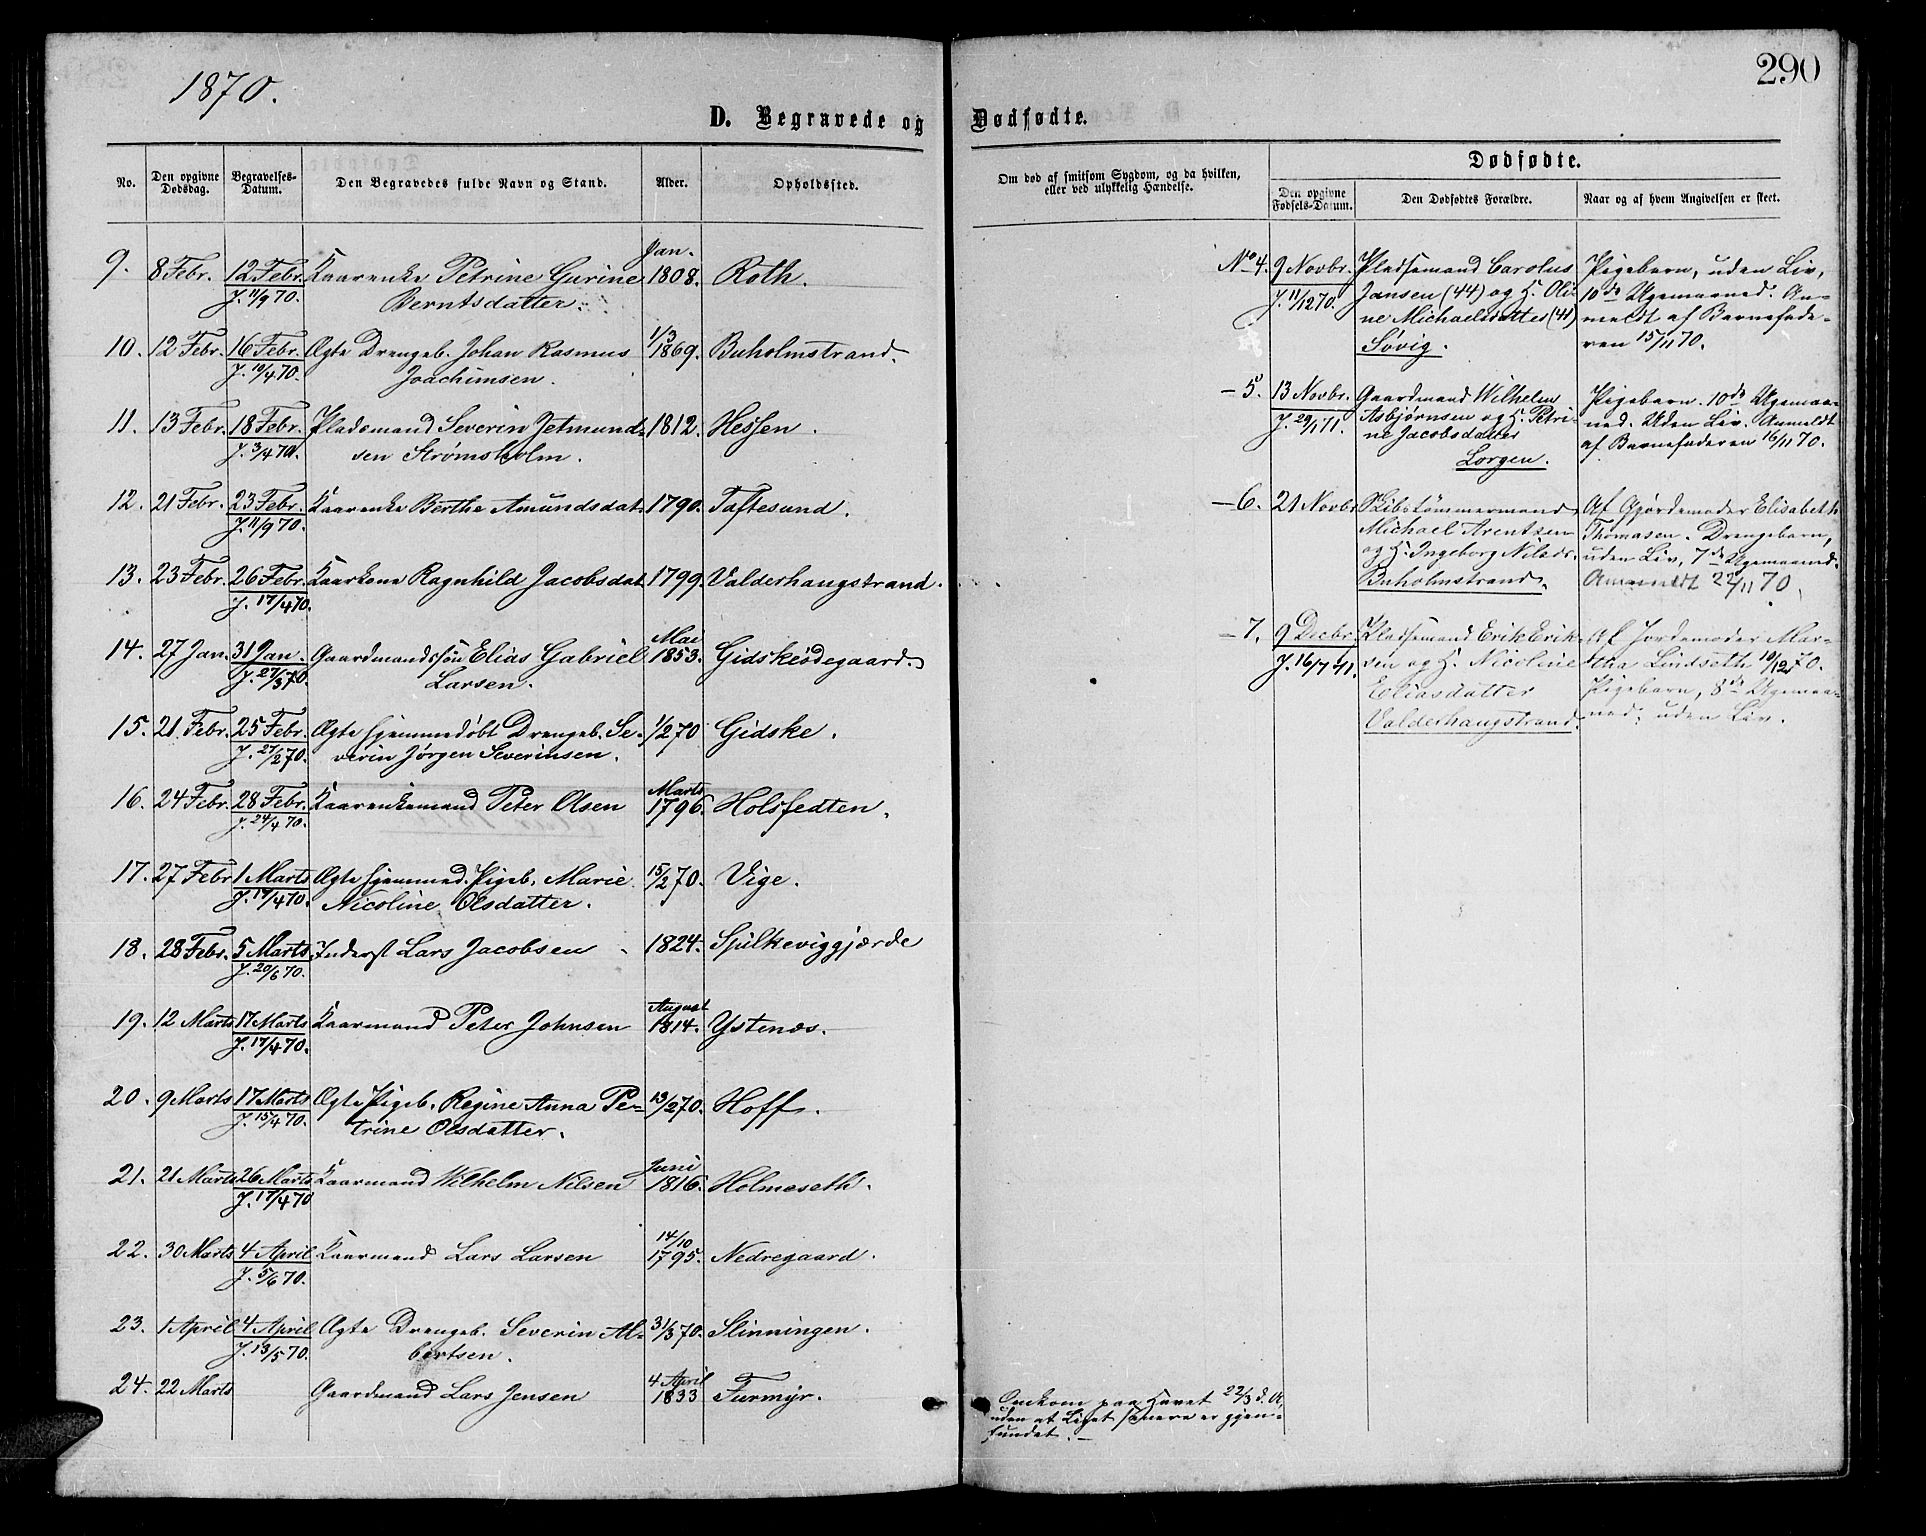 1870.
290
D. Begravede og Dødfødte.
No.
Den opgivne Dødsdag.
Begravelses-Datum.
Den Begravedes fulde Navn og Stand.
Alder.
Opholdssted.
Om død af smitsom Sygdom, og da hvilken,
eller ved ulykkelig Hændelse.
Dødfødte.
Den opgivne Fødsels-Datum.
Den Dødfødtes Forældre.
Naar og af hvem Angivelsen er skeet.
Jan.
9. 8 Febr. 12 Febr. Kaarenke Petrine Gurine 1808. Roth.
J. 11/9 70. Berntsdatter.
1/3
10. 12 Febr. 16 Febr. Ægte Drengeb. Johan Rasmus 1869. Buholmstrand.
J. 19/4 70. Joachimsen.
11. 13 Febr. 18 Febr. Pladsmand Severin Jetmund- 1812. Hessen.
J. 3/4 70. sen Strømsholm.
12. 21 Febr. 23 Febr. Kaarenke Berthe Amundsdat. 1790. Taftesund.
J. 11/9 70.
13. 23 Febr. 26 Febr. Kaarkone Ragnhild Jacobsdat. 1799. Valderhaugstrand.
J. 17/4 70.
Mai
14. 27 Jan. 31 Jan. Gaardmandssøn Elias Gabriel 1853. Gidskeødegaard.
J. 27/3 70. Larsen.
15. 21 Febr. 25 Febr. Ægte hjemmedøbt Drengeb. Se- 1/2 70 Gidske.
J. 27/2 70. verin Jørgen Severinsen.
Marts
16. 24 Febr. 28 Febr. Kaarenkemand Peter Olsen 1796. Holsfedten.
J. 24/4 70.
17. 27 Febr 1 Marts Ægte hjemmed. Pigeb. Marie 15/2 70. Vige.
J. 17/4 70. Nicoline Olsdatter.
18. 28 Febr. 5 Marts Inderst Lars Jacobsen 1824. Spilkeviggjærde
J. 20/6 70.
August
19. 12 Marts 17 Marts Kaarmand Peter Johnsen 1814. Ystenæs.
J. 17/4 70.
20. 9 Marts 17 Marts Ægte Pigeb. Regine Anna Pe- 13/2 70. Hoff.
J. 15/4 70. trine Olsdatter.
Juni
21. 21 Marts 26 Marts Kaarmand Wilhelm Nilsen 1816. Holmeseth.
J. 17/4 70
14/10
22. 30 Marts 4 April Kaarmand Lars Larsen 1795. Nedregaard.
J. 5/6 70.
23. 1 April 4 April Ægte Drengeb. Severin Al- 31/3 70. Slinningen.
J. 13/5 70. bertsen.
4 April
24. 22 Marts Gaardmand Lars Jensen 1833 Furmyr.
Omkom paa Havet 22/3 d. A,
uden at Liget senere er gjen-
fundet.
No 4. 9 Novbr. Pladsemand Carolus Pigebarn, uden Liv,
J. 11/12 70. Jansen (44) og H. Oli- 10de Ugemaaned. An-
ne Michaelsdatter (41) meldt af Barnefade-
Søvig. ren 15/11 70.
- 5. 13 Novbr. Gaardmand Wilhelm Pigebarn. 10de Ugemaa-
J. 29/1 71. Asbjørnsen og H. Petri- ned. Uden Liv. Anmeldt
ne Jacobsdatter af Barnefaderen 16/11 70.
Lorgen.
- 6. 21 Novbr Skibstømmermand Af Gjordemoder Elisabeth
Michael Arentzen Thomasen. Drengebarn,
og H. Ingeborg Nilsdr. uden Liv, 7de Ugemaaned.
Buholmstrand. Anmeldt 22/11 70.
- 7. 9 Decbr. Pladsemand Erik Erik- Af Jordemoder Mar-
J. 16/7 71. sen og H. Nicoline tha Lindseth 10/12 70.
Eliasdatter Pigebarn, 8de Ugemaa-
Valderhaugstrand. ned, uden Liv.